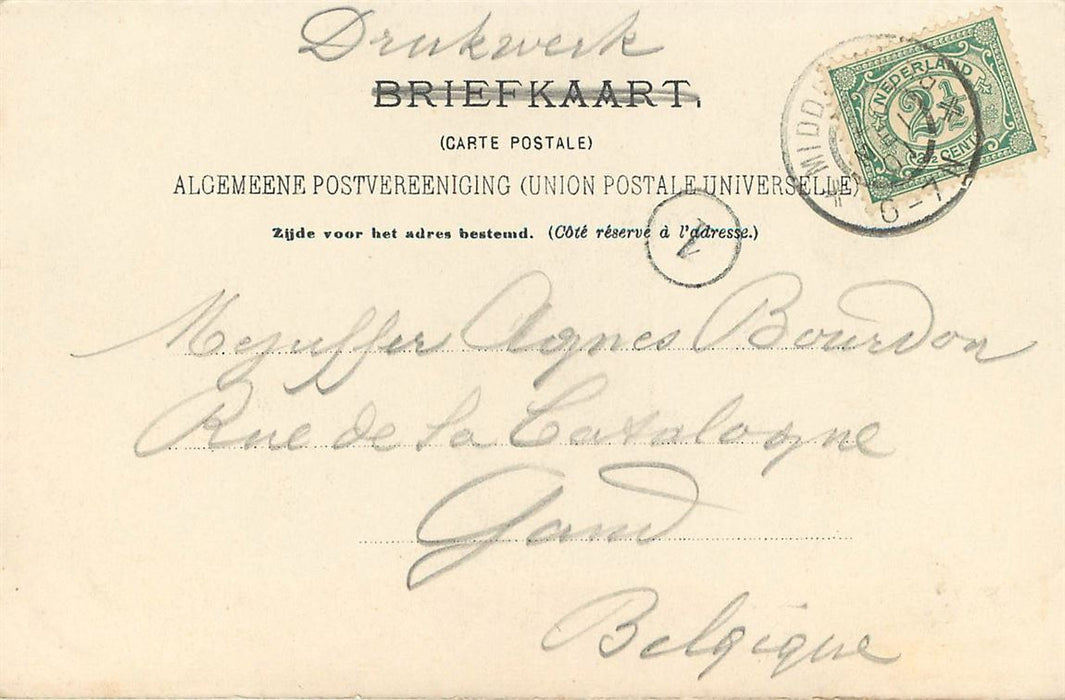 Drukwerk
BRIEFKAART.
(CARTE POSTALE)
ALGEMEENE POSTVEREENIGING (UNION POSTALE UNIVERSELLE)
Zijde voor het adres bestemd. (Côté réservé à l'adresse.)
NEDERLAND
2½
CENT
MIDD
6-7
1
Mejuffer Agnes Bourdon
Rue de la Catalogne
Gand
Belgique